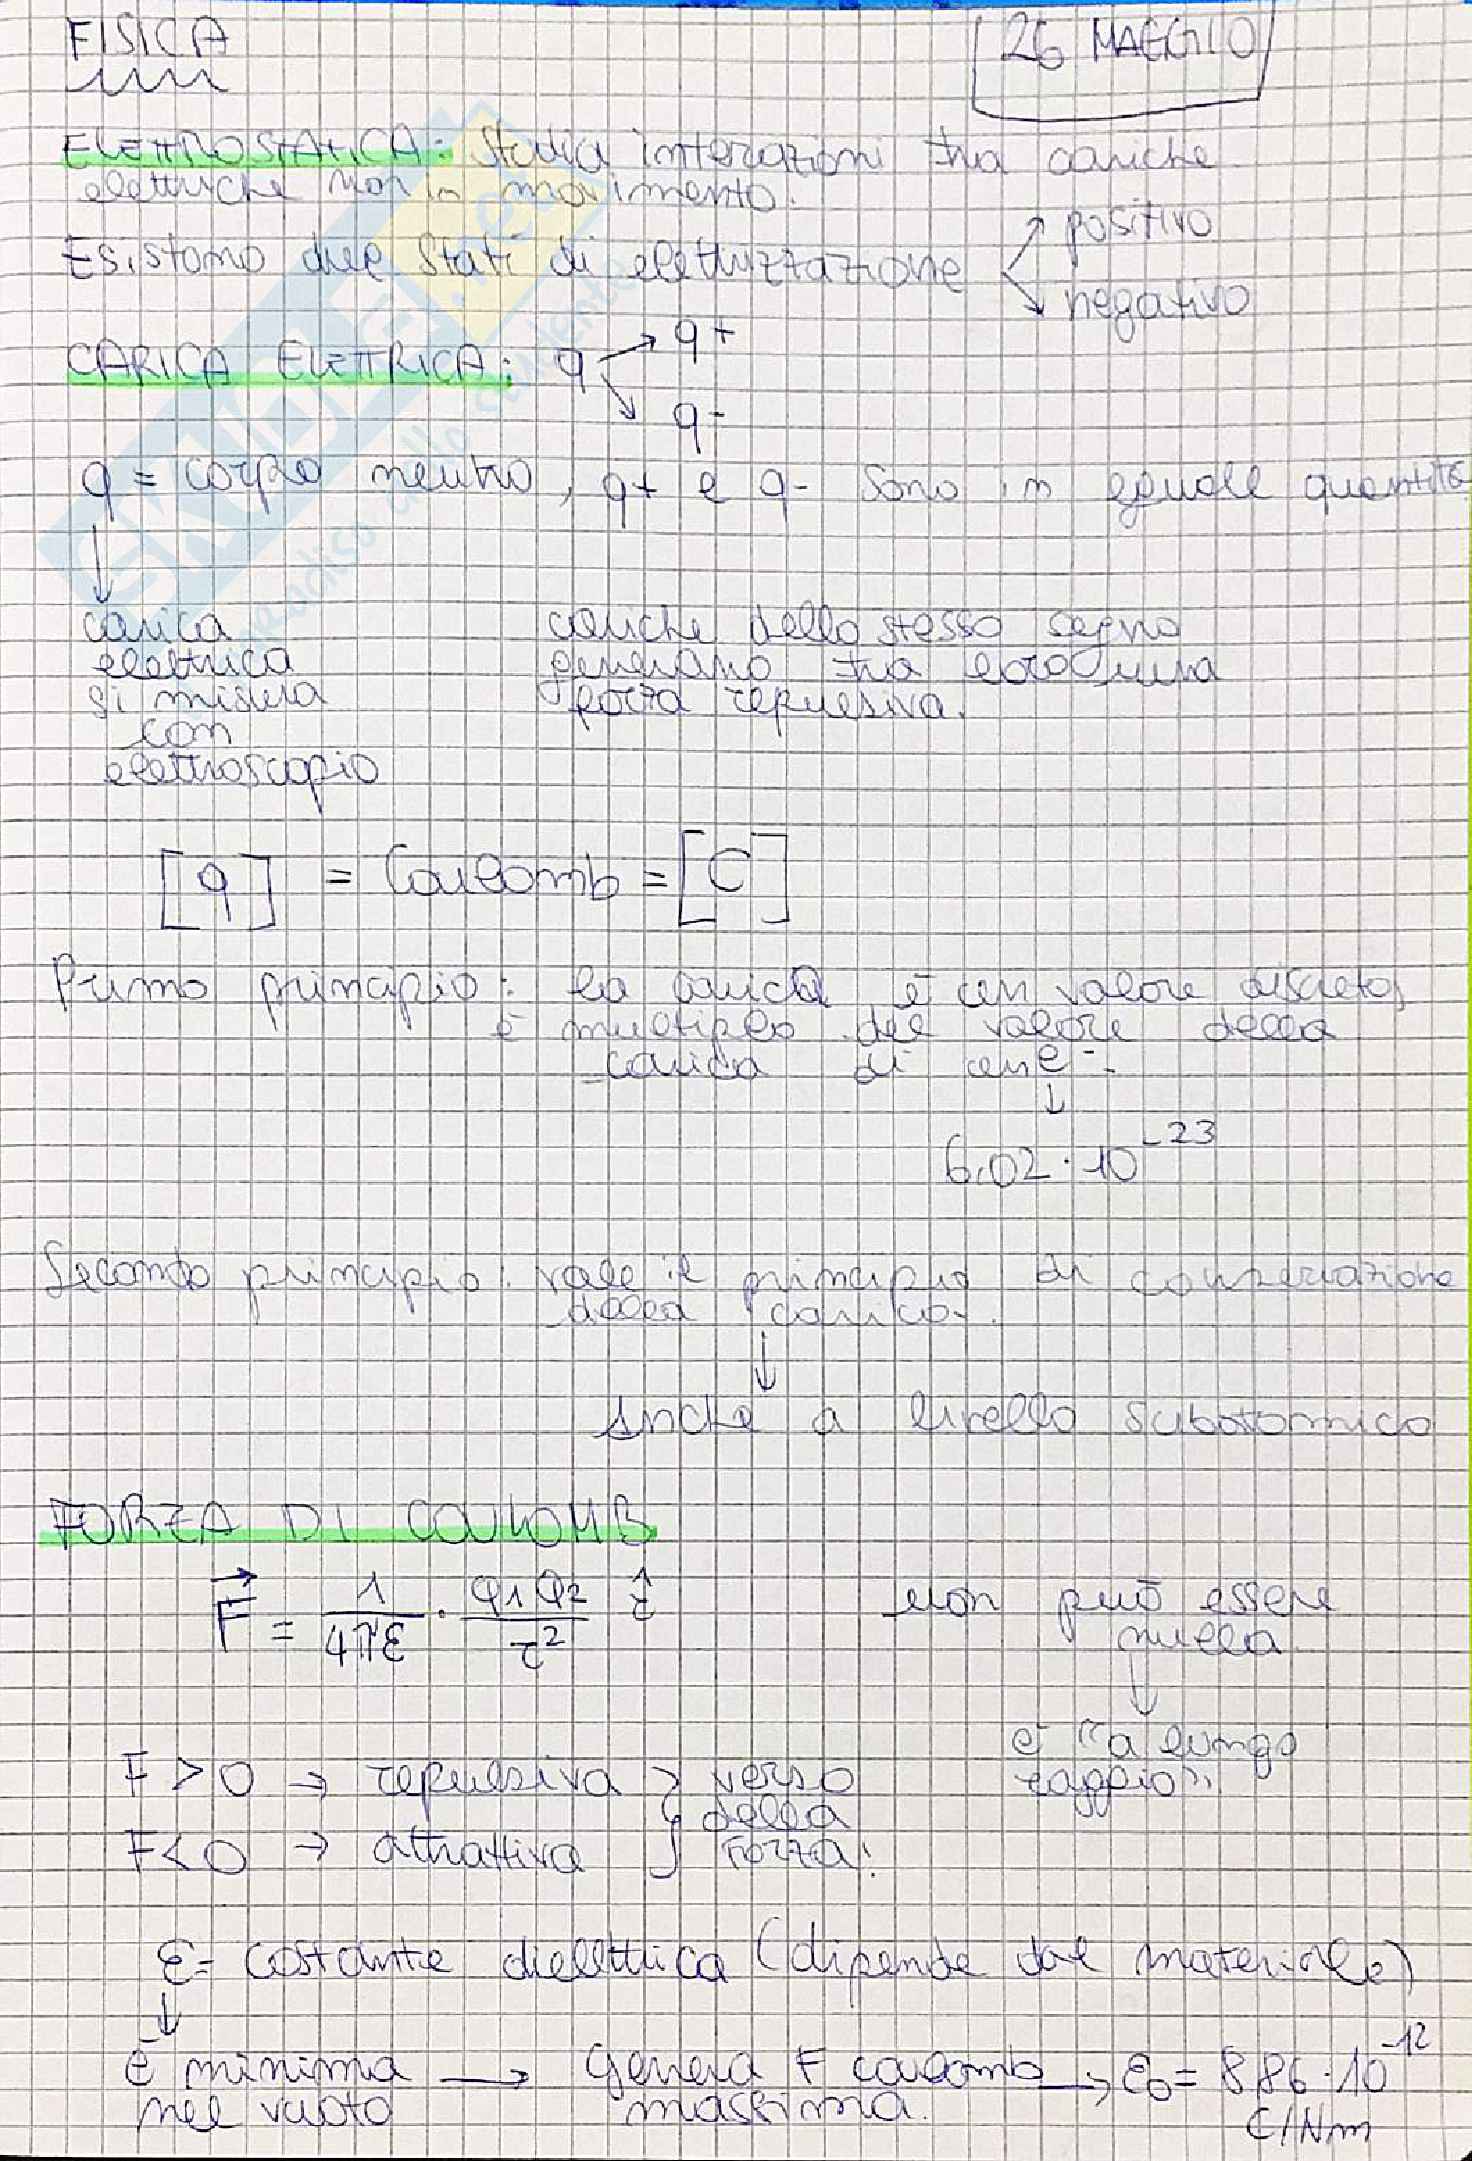 FISICA
26 MAGGIO
ELETTROSTATICA: studia interazioni tra cariche
elettriche non in movimento.
Esistono due stati di elettrizzazione
positivo
negativo
CARICA ELETTRICA: q
q+
q-
q = corpo neutro, q+ e q- sono in eguale quantità
carica
elettrica
si misura
con
elettroscopio
cariche dello stesso segno
generano tra loro una
forza repulsiva.
[q] = Coulomb = [C]
Primo principio: la carica è un valore discreto,
è multiplo del valore della
carica di un e-.
6,02 · 10^-23
Secondo principio: vale il principio di conservazione
della carica.
Anche a livello subatomico
FORZA DI COULOMB
F⃗ = 1/4πε · Q1Q2/r² r̂
non può essere
nulla
è "a lungo
raggio"
F > 0 → repulsiva } verso
della
F < 0 → attrattiva } forza!
ε = costante dielettrica (dipende dal materiale)
è minima → genera F coulomb → ε0 = 8,86 · 10^-12
nel vuoto massima. C/Nm
SKUOLA.net
paradiso dello studente